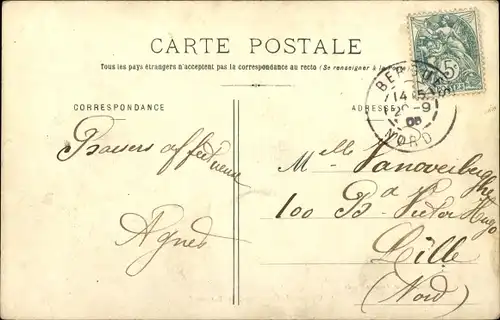 CARTE POSTALE
Tous les pays étrangers n'acceptent pas la correspondance au recto (Se renseigner à la Poste)
CORRESPONDANCE
ADRESSE
BERGUES
14
NORD
5c
Baisers affectueux
Agnès
Melle Vanoverberghe
100 Bd Victor Hugo
Lille
(Nord)